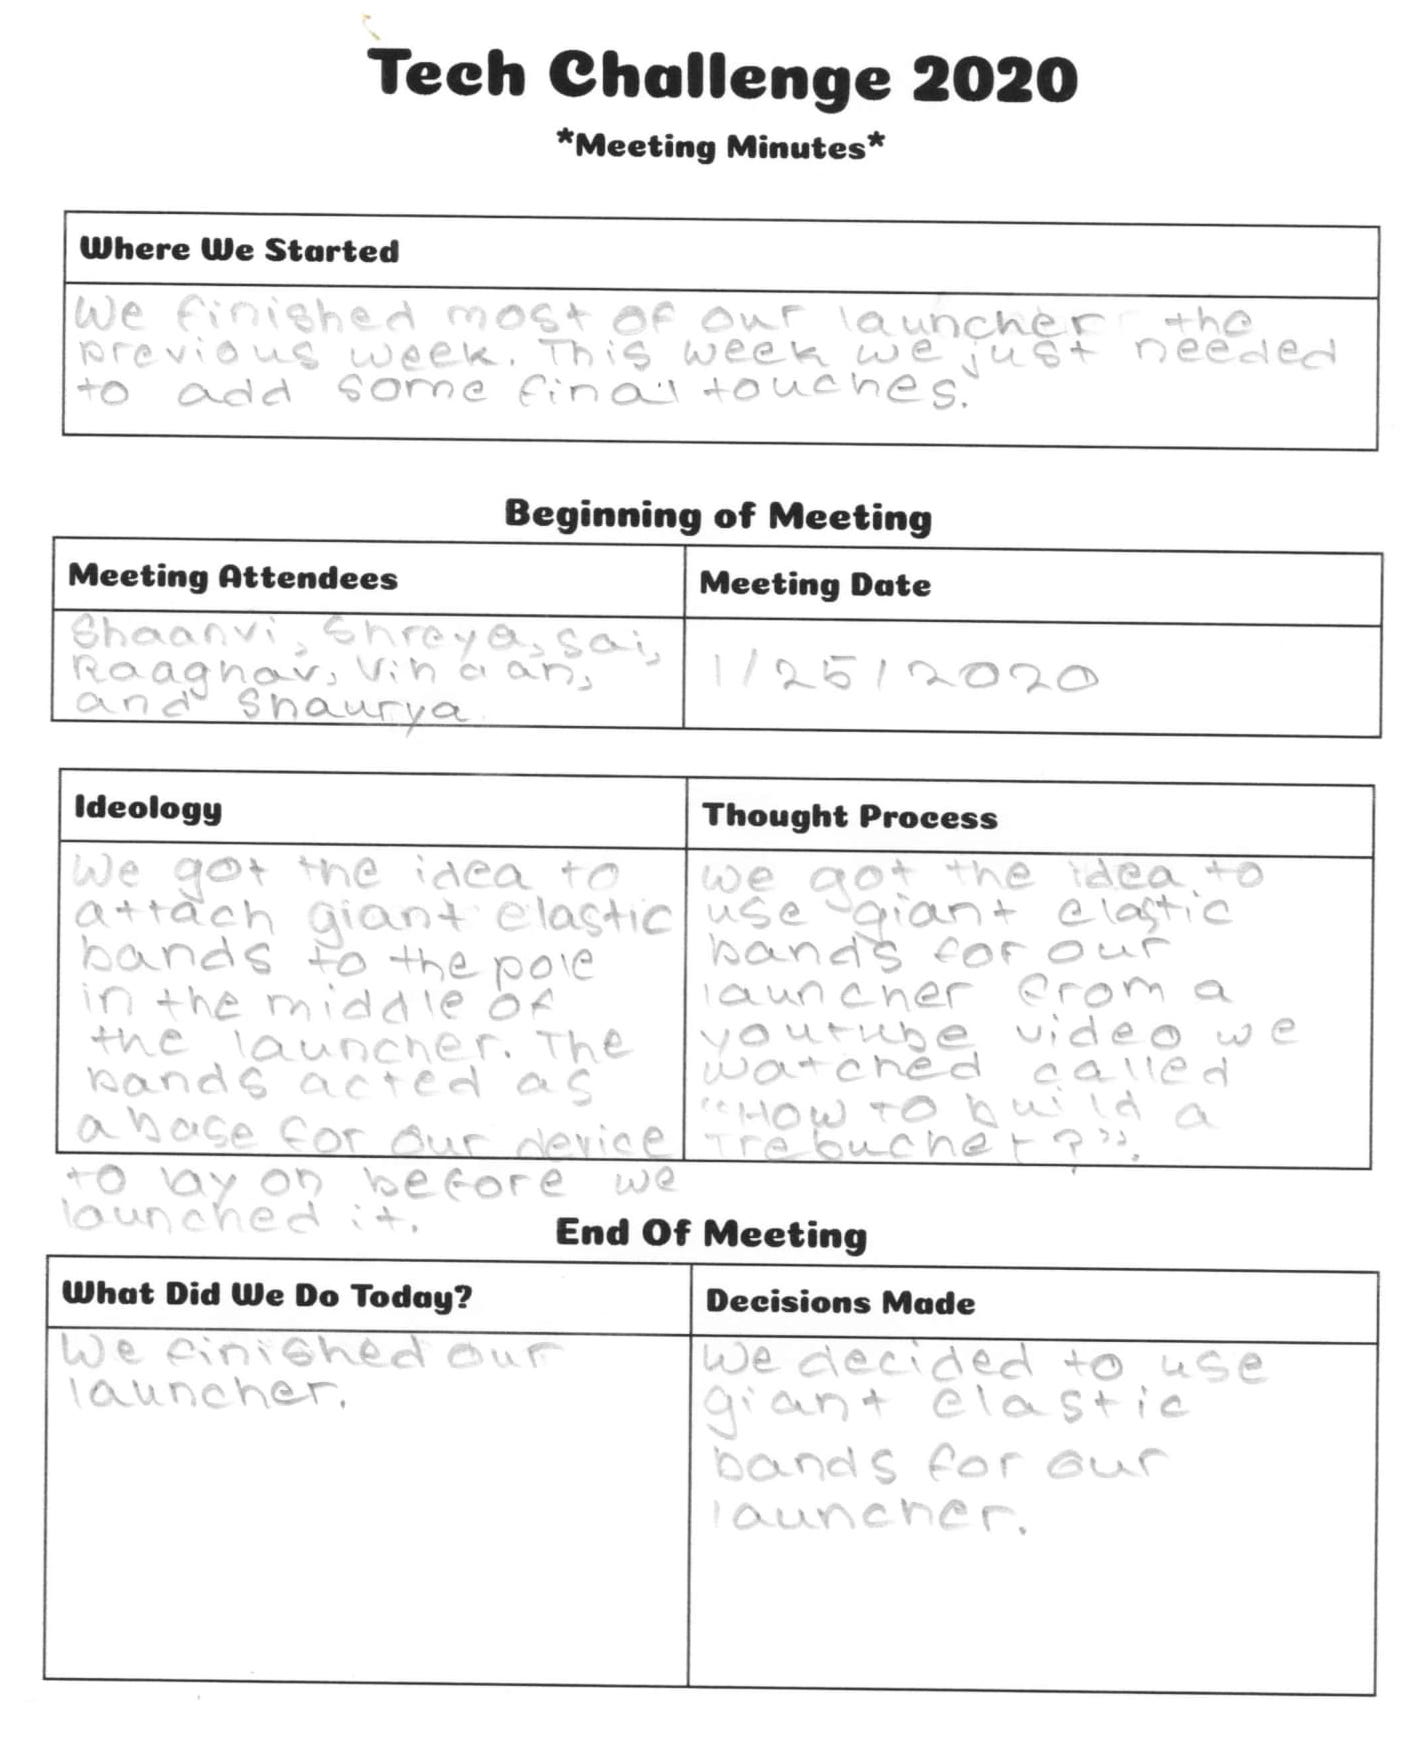 Tech Challenge 2020
*Meeting Minutes*
Where We Started
We finished most of our launcher the
previous week. This week we just needed
to add some final touches.
Beginning of Meeting
Meeting Attendees
Shaanvi, Shreya, Sai,
Raaghav, Vihaan,
and Shaurya
Meeting Date
1/25/2020
Ideology
We got the idea to
attach giant elastic
bands to the pole
in the middle of
the launcher. The
bands acted as
a base for our device
to lay on before we
launched it.
Thought Process
We got the idea to
use giant elastic
bands for our
launcher from a
youtube video we
watched called
"How to build a
Trebuchet?".
End Of Meeting
What Did We Do Today?
We finished our
launcher.
Decisions Made
We decided to use
giant elastic
bands for our
launcher.